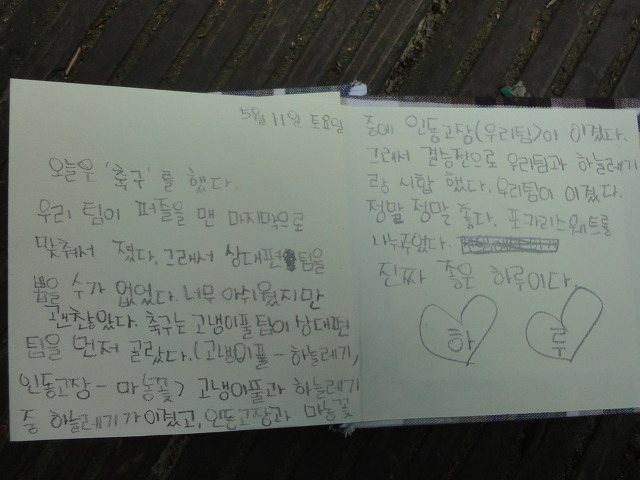 5월 11일 토요일
오늘은 '축구'를 했다.
우리 팀이 퍼즐을 맨 마지막으로
맞춰서 졌다. 그래서 상대편 팀을
뽑을 수가 없었다. 너무 아쉬웠지만
괜찮았다. 축구는 고냉이풀팀이 상대편
팀을 먼저 골랐다.(고냉이풀 - 하늘레기,
인동고장 - 마농꽃> 고냉이풀과 하늘레기
중 하늘레기가 이겼고, 인동고장과 마농꽃
중에 인동고장(우리팀)이 이겼다.
그래서 결승전으로 우리팀과 하늘레기
랑 시합 했다. 우리팀이 이겼다.
정말 정말 좋다. 포카리스웨트를
나누주었다.
진짜 좋은 하루이다.
하 루